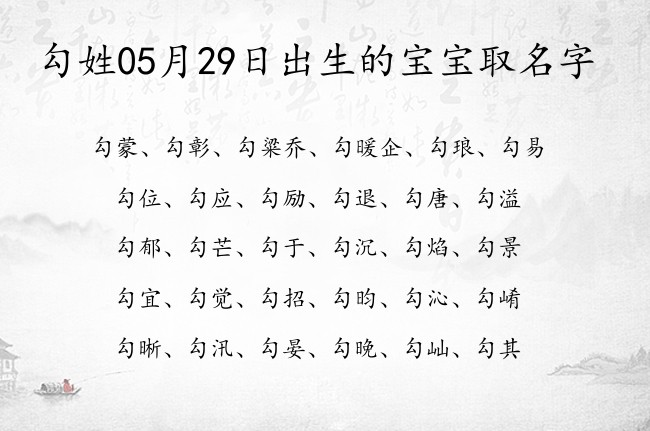 勾姓05月29日出生的宝宝取名字
勾蒙、勾彰、勾梁乔、勾暖企、勾琅、勾易
勾位、勾应、勾励、勾退、勾唐、勾溢
勾郁、勾芒、勾于、勾沉、勾焰、勾景
勾宜、勾觉、勾招、勾昀、勾沁、勾崤
勾晰、勾汛、勾晏、勾晚、勾屾、勾其